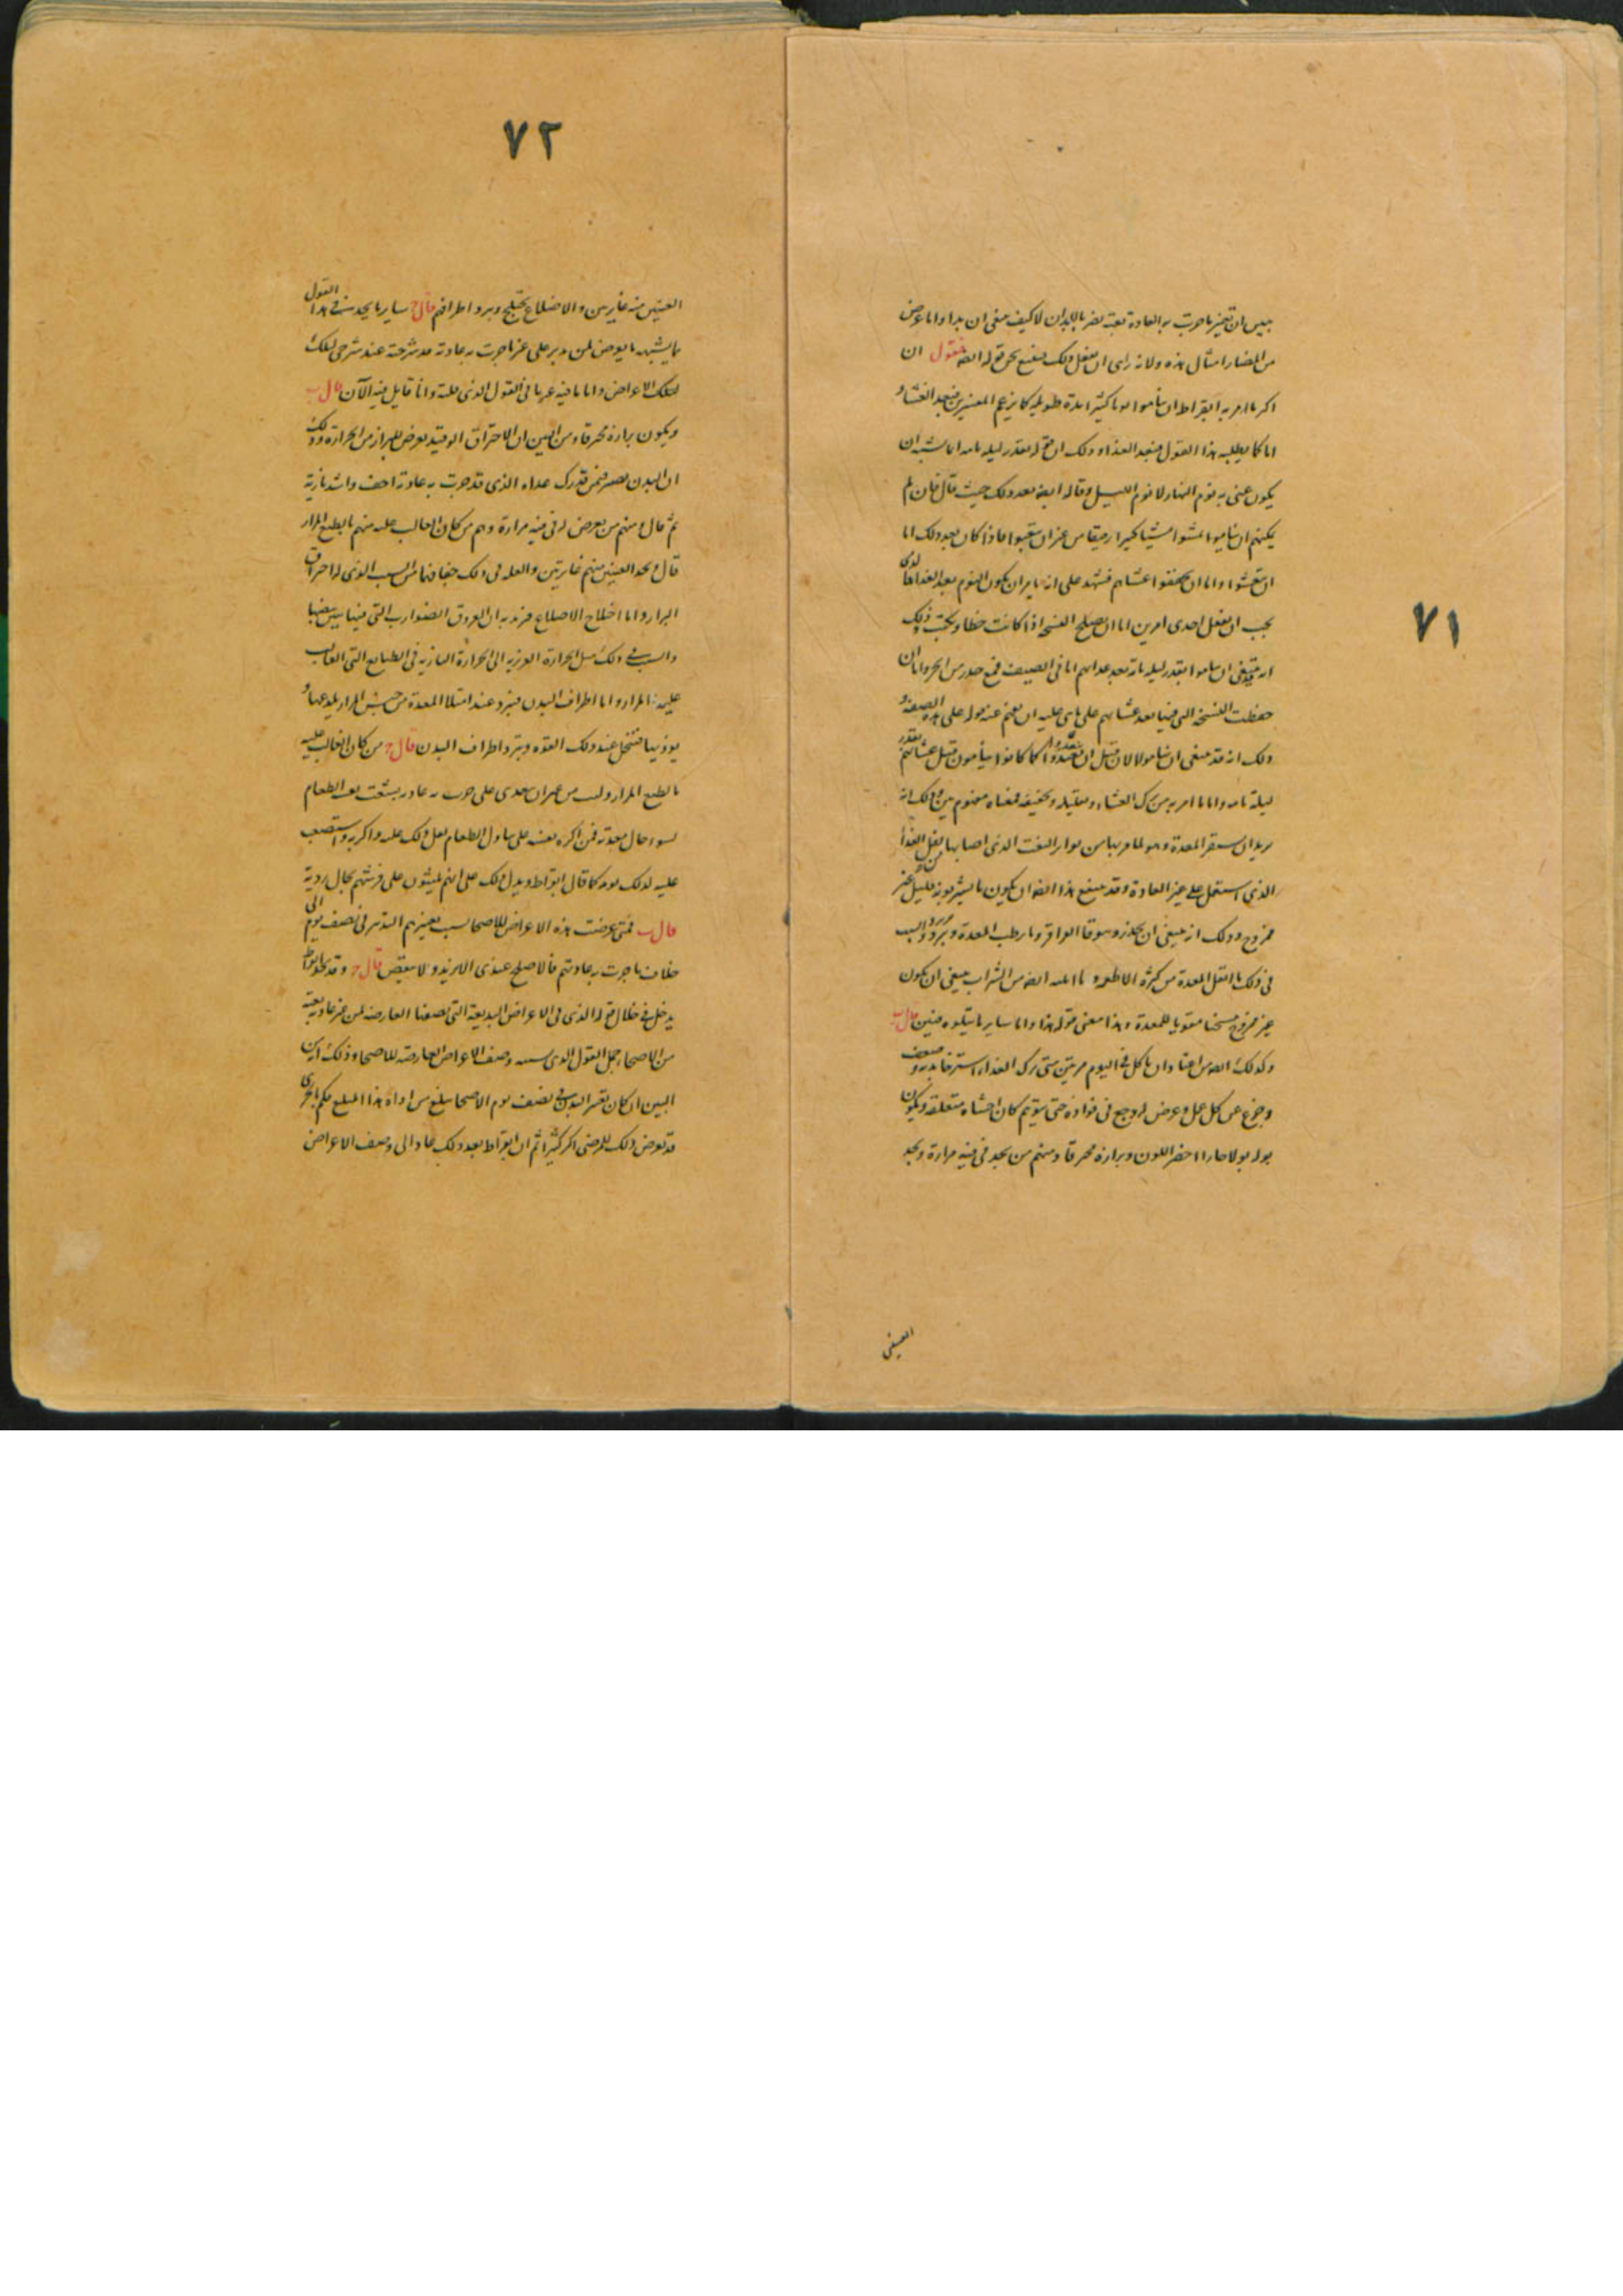 ٧١
يبين ان تغير ما جرت به العادة بغتة يضر بالابدان لا كيف ينبغي ان يداوا ما عرض
من المضار امثال هذه ولانه راى ان يفعل ذلك فينبغي نحن قوله ايضا فنقول ان
اكثر ما امر به ابقراط ان يناموا نوما كثيرا مدة طويلة كما يزعم المفسرين بعد العشاء و
اما كما يطلبه هذا القول فبعد الغذاء وذلك ان قوله بقدر ليلة تامة اما يشبه ان
يكون عنى به نوم النهار لا نوم الليل وقاله ايضا بعد ذلك حيث قال فان لم
يمكنهم ان يناموا فليمشوا مشيا كثيرا رفيقا من غير ان يتعبوا فاذا كان بعد ذلك اما
ان يتعشوا واما ان يخففوا عشاهم فيشهد على انه يامر ان يكون النوم بعد الغذاء
يجب ان يفعل احدى امرين اما ان يصلح النسخة اذا كانت خطا ويكتب ذلك
انه ينبغي ان يناموا بقدر ليلة تامة بعد غداهم اما في الصيف فمع حذر من الحر واما ان
حفظت النسخة التي فيها بعد عشاهم على ما هي عليه ان يفهم عنه قوله على هذه الصفة و
ذلك انه قد ينبغي ان يناموا لا لان قبل ان يتغدوا كما كانوا ينامون قبل عشائهم بقدر
ليلة تامة واما ما امر به من ترك العشاء وتقليله وتخفيفه فمعناه مفهوم بين وذلك انه
يريد ان يستقر المعدة وهو لما مر بها من الذى اصابها بثقل الغذاء
الذي استعمل على غير العادة وقد ينبغي هذا ايضا ان يكون ما يشربونه قليل غير
ممزوج وذلك انه ينبغي ان يحذروا فوقا الوافر وما يرطب المعدة ويبرد والسبب
في ذلك ما اثقل المعدة من كثرة الاطعمة وما ايضا من الشراب ينبغي ان يكون
غير ممزوج مسخنا مقويا للمعدة وهذا معنى قوله هذا واما ساير ما يتلوه فبين قال ب
وكذلك ايضا من اعتاد ان ياكل في اليوم مرتين متى ترك الغداء استرخا بدنه وضعف
وجزع عن كل عمل وعرض له وجع في فواده حتى يتوهم كان احشاه متعلقة ويكون
بوله بولا حارا اخضر اللون وبرازه محرقا ومنهم من يجد في فيه مرارة ويجد
العينين
٧٢
العينين منه غايرين والاضلاع تختلج وبرد اطرافه قال ج ساير ما يحدث في هذا القول
ما يشبه ما يعرض لمن دبر على غير ما جرت به عادته قد شرحته عند شرحي لتلك
لتلك الاعراض واما ما فيه غريبا في القول الذى قلته وانا قايل فيه الآن قال ب
ويكون برازه محرقا ومن البين ان الاحتراق الوقتيد يعرض للبراز من الحرارة وذلك
ان البدن يصير فمن قد ترك غذاه الذي قد جرت به عادته اجف واشد نارية
ثم قال ومنهم من يعرض له في فيه مرارة وهم من كان الغالب عليه منهم بالطبع المرار
قال ويجد العينين منهم غايرتين والعلة في ذلك جفافها من السبب الذى له احراق
البراز واما اختلاج الاضلاع فيريد به ان العروق الضوارب التي فيها يبين نبضها
والسبب في ذلك ميل الحرارة الغريزية الى الحرارة النارية في الطبايع التى الغالب
عليهم المرار واما اطراف البدن فتبرد عند امتلا المعدة من جنس المرار يلذعها و
يوذيها فتنحل عند ذلك القوة ويبرد اطراف البدن قال ج من كان الغالب عليه
بالطبع المرار وليس من غير ان يتغدى على جرت به عادته يشقت بعد الطعام
لسوء حال معدته فمن اكره نفسه على تناول الطعام ثقل ذلك عليه واكربه واستصعب
عليه لذلك نومه كما قال ابقراط ويدل ذلك على انهم يمشون على فرشهم بحال ردية
قال ب فمتى عرضت هذه الاعراض للاصحا بسبب تغييرهم التدبير في نصف يوم الى
خلاف ما جرت به عادتهم فالاصلح عندى الا يزيدو ولا ينقص قال ج وقد كان ابقراط
يدخل في خلال قوله الذى في الاعراض البديعة التى يصفها العارضة لمن غير عادته بغتة
من الاصحا وجعل القول الذى وصف الاعراض العارضة للاصحا وذلك انه من
البين ان كان تغيير التدبير في نصف يوم الاصحا يبلغ من اذاه هذا المبلغ فكم بالحرى
قد تعرض ذلك للمرضى اكثر كثيرا ثم ان ابقراط بعد ذلك عاد الى وصف الاعراض